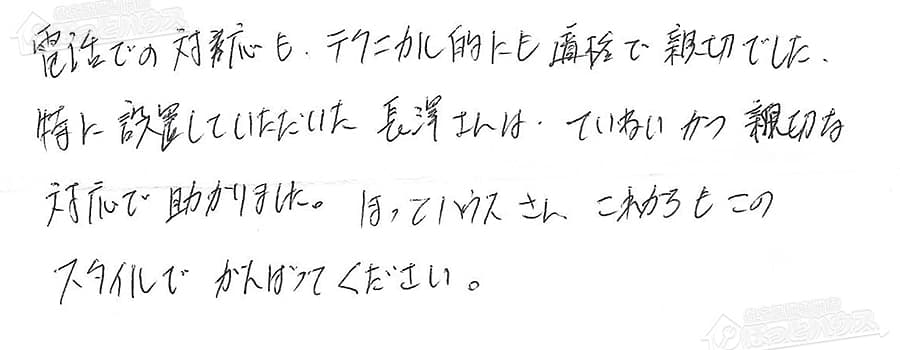 電話での対応も、テクニカル的にも直接で親切でした、
特に設置していただいた長澤さんは、ていねいかつ親切な
対応で助かりました。ほってハウスさんこれからもこの
スタイルでがんばってください。
ほっとハウス